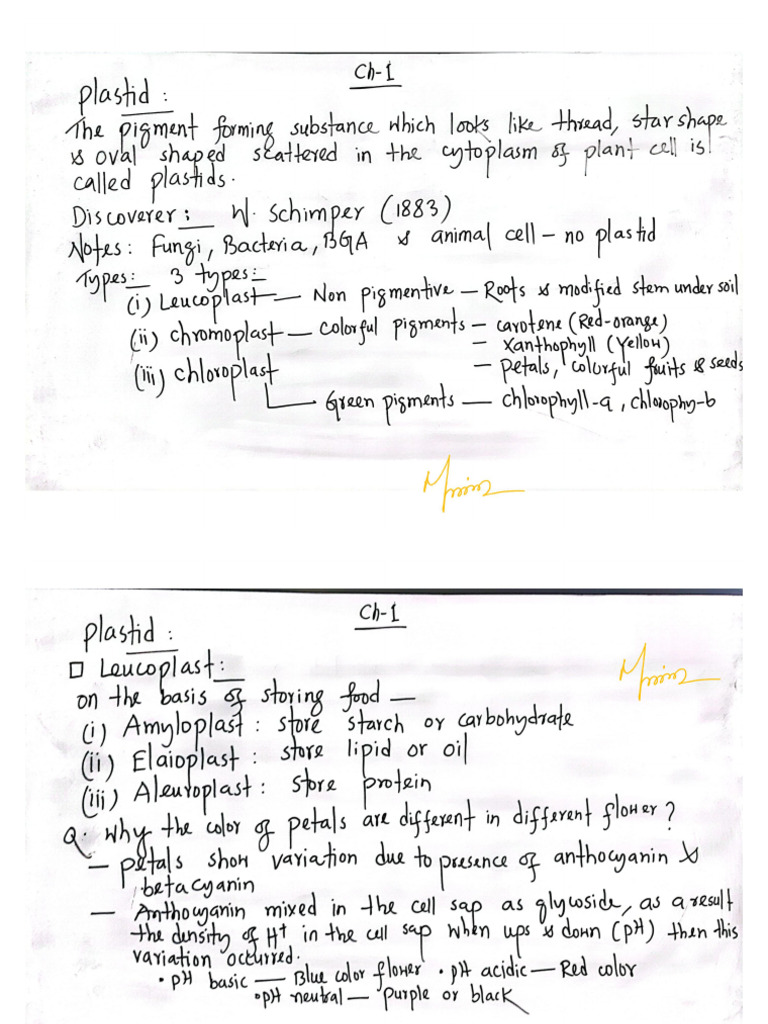 Ch-1
Plastid :
The pigment forming substance which looks like thread, star shape
& oval shaped scattered in the cytoplasm of plant cell is
called plastids.
Discoverer : W. Schimper (1883)
Notes: Fungi, Bacteria, BGA & animal cell – no plastid
Types:- 3 types:-
(i) Leucoplast — Non pigmentive — Roots & modified stem under soil
(ii) chromoplast — colorful pigments – carotene (Red-orange)
– Xanthophyll (Yellow)
(iii) chloroplast – petals, colorful fruits & seeds
Green pigments — chlorophyll-a, chlorophy-b
Ch-1
Plastid :
□ Leucoplast:
on the basis of storing food —
(i) Amyloplast : store starch or carbohydrate
(ii) Elaioplast : store lipid or oil
(iii) Aleuroplast : store protein
Q: Why the color of petals are different in different flower?
– petals show variation due to presence of anthocyanin &
betacyanin
– Anthocyanin mixed in the cell sap as glycoside, as a result
the density of H⁺ in the cell sap when ups & down (pH) then this
variation occurred.
• pH basic — Blue color flower • pH acidic — Red color
• pH neutral — purple or black